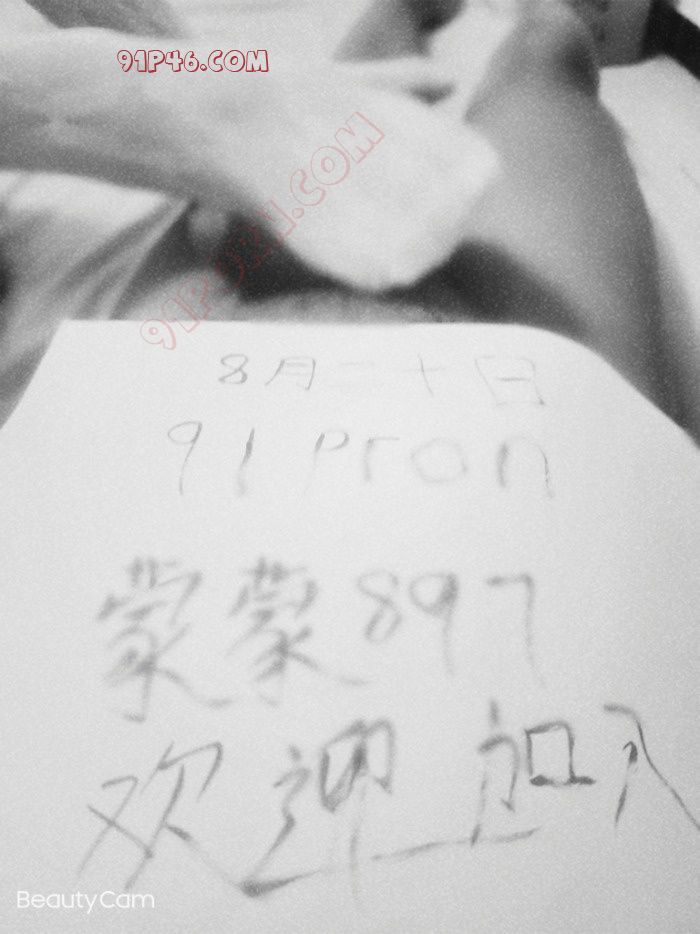 91P46.COM
91PORN.COM
8月二十日
91 Pron
蒙蒙897
欢迎加入
BeautyCam